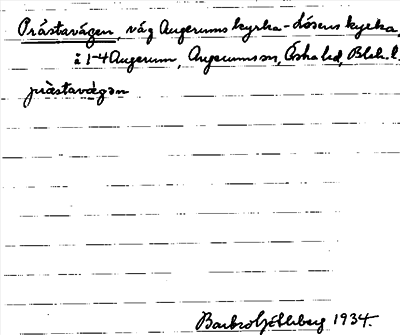 Prästavägen, väg Augerums kyrka - Lösens kyrka,
i 1-4 Augerum, Augerums sn, Östra hd, Blek. l.
prästavägən
Barbro Ljökberg 1934.